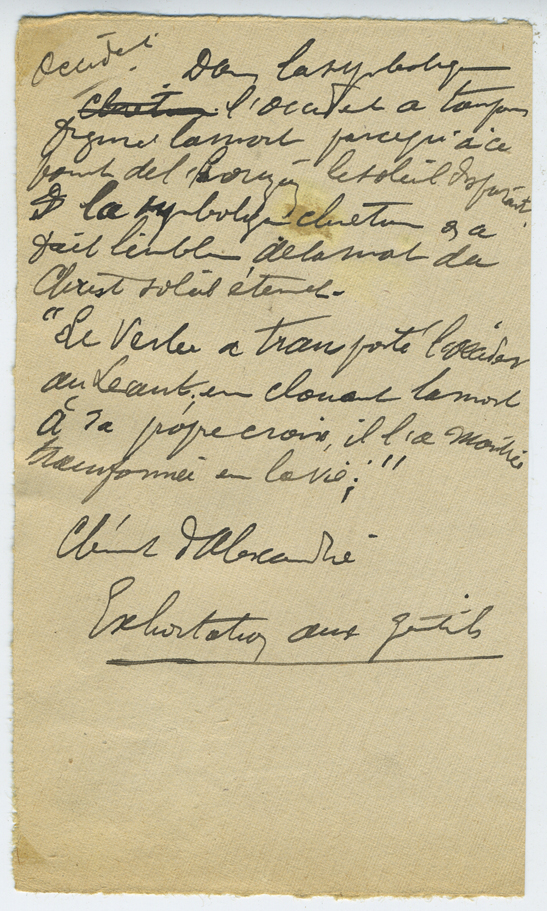 Occident. Dans la symbolique
chretien l'occident a toujours
figuré la mort parcequ'à ce
point de l'horizon le soleil disparait
D la symbolique chretien on a
fait l'emblem de la mort du
Christ soleil éternel.
"Le Verbe a transporté l'occident
au Levant, en clouant la mort
à sa propre croix, il l'a montrée
transformée en la vie;"
Clément d'Alexandrie
Exhortation aux gentils